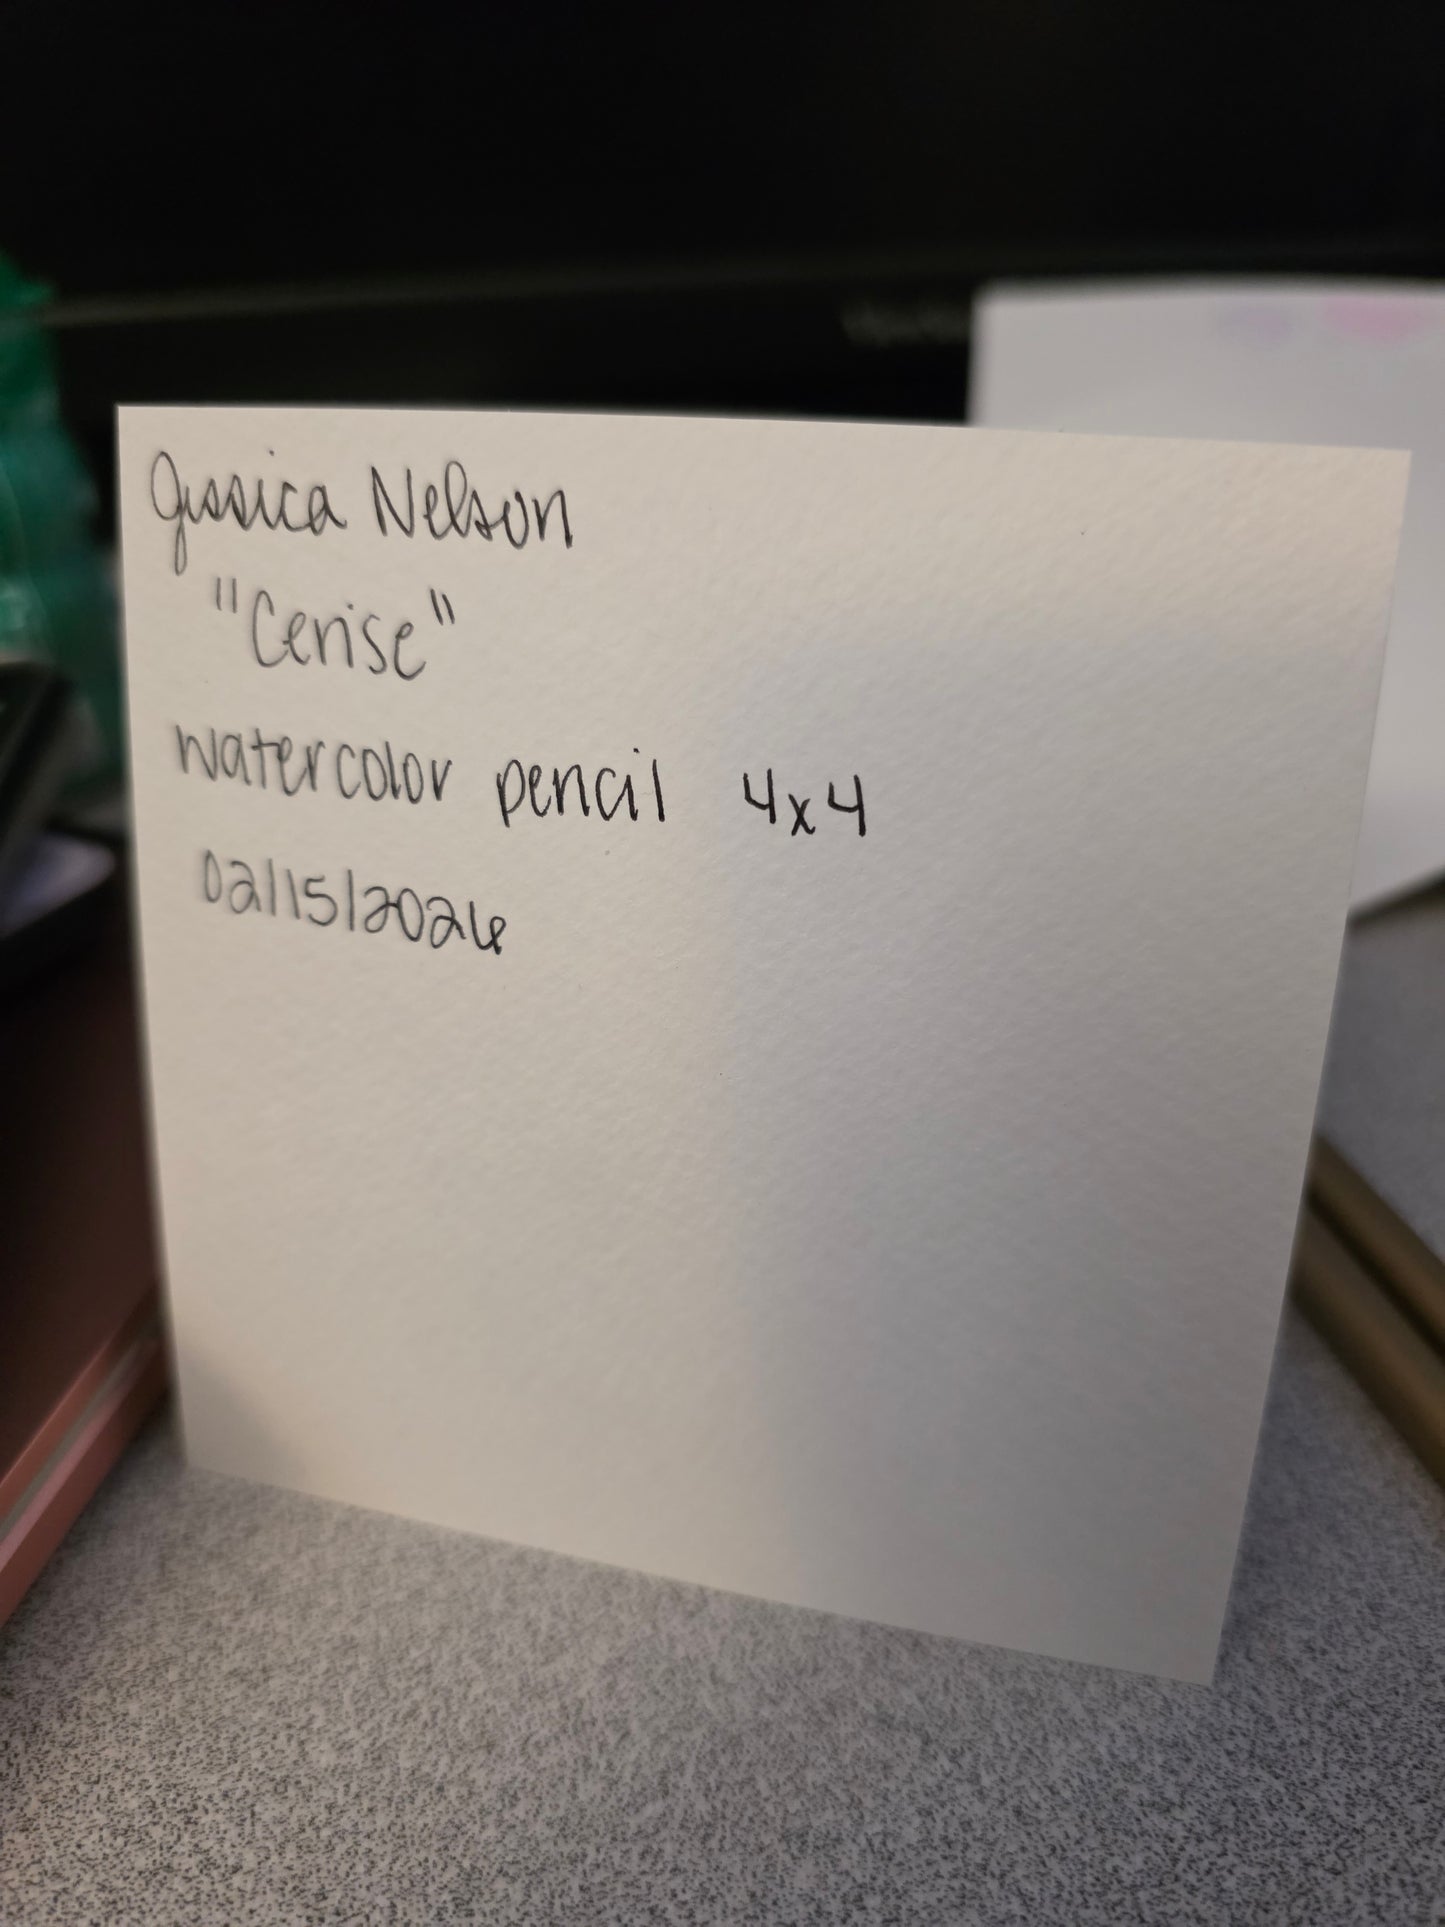 Jessica Nelson
"Cerise"
watercolor pencil 4x4
02/15/2026